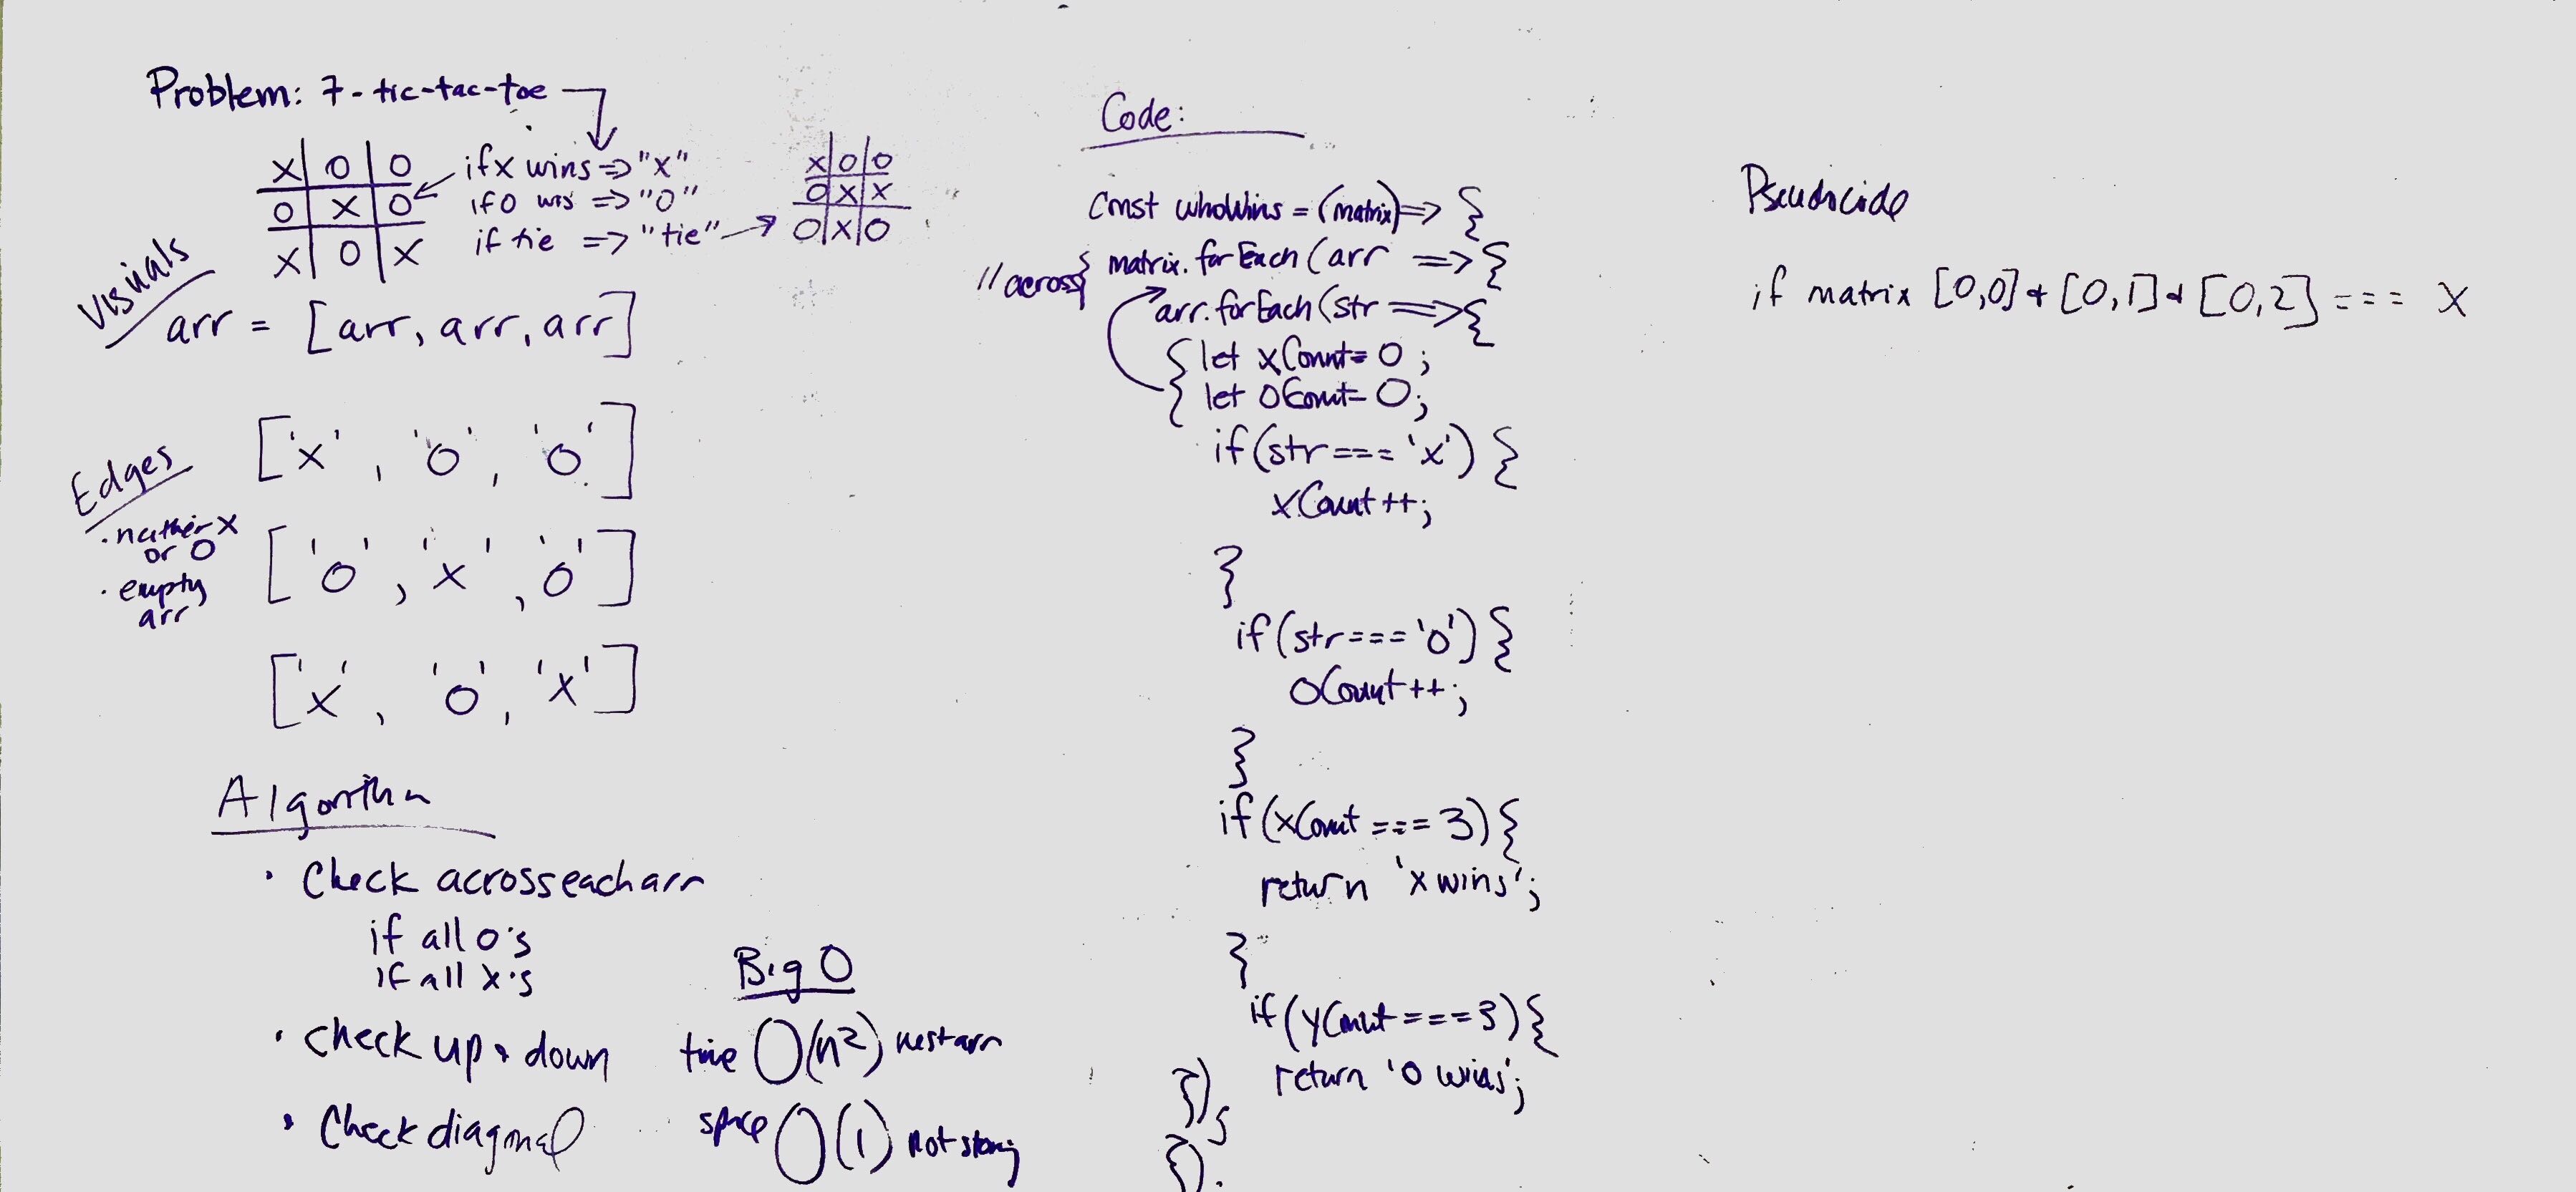 Problem: 7 - tic-tac-toe
X O O
O X O
X O X
if x wins => "x"
if O wis => "O"
if tie => "tie"
X O O
O X X
O X O
Visuals
arr = [arr, arr, arr]
['x', 'o', 'o']
['o', 'x', 'o']
['x', 'o', 'x']
Edges
· neither X
or O
· empty
arr
Algorithm
· Check across each arr
if all o's
if all x's
· check up & down
· Check diagonal
Big O
time O(n²) nest arr
space O(1) not storing
Code:
Const whoWins = (matrix) => {
// across { matrix.forEach(arr => {
arr.forEach(str => {
{ let xCount = 0;
{ let OCount = 0;
if(str === 'x') {
xCount++;
}
if(str === 'o') {
OCount++;
}
if(xCount === 3) {
return 'x wins';
}
if(yCount === 3) {
return 'O wins';
});
});
Pseudocide
if matrix [0,0] + [0,1] + [0,2] === X